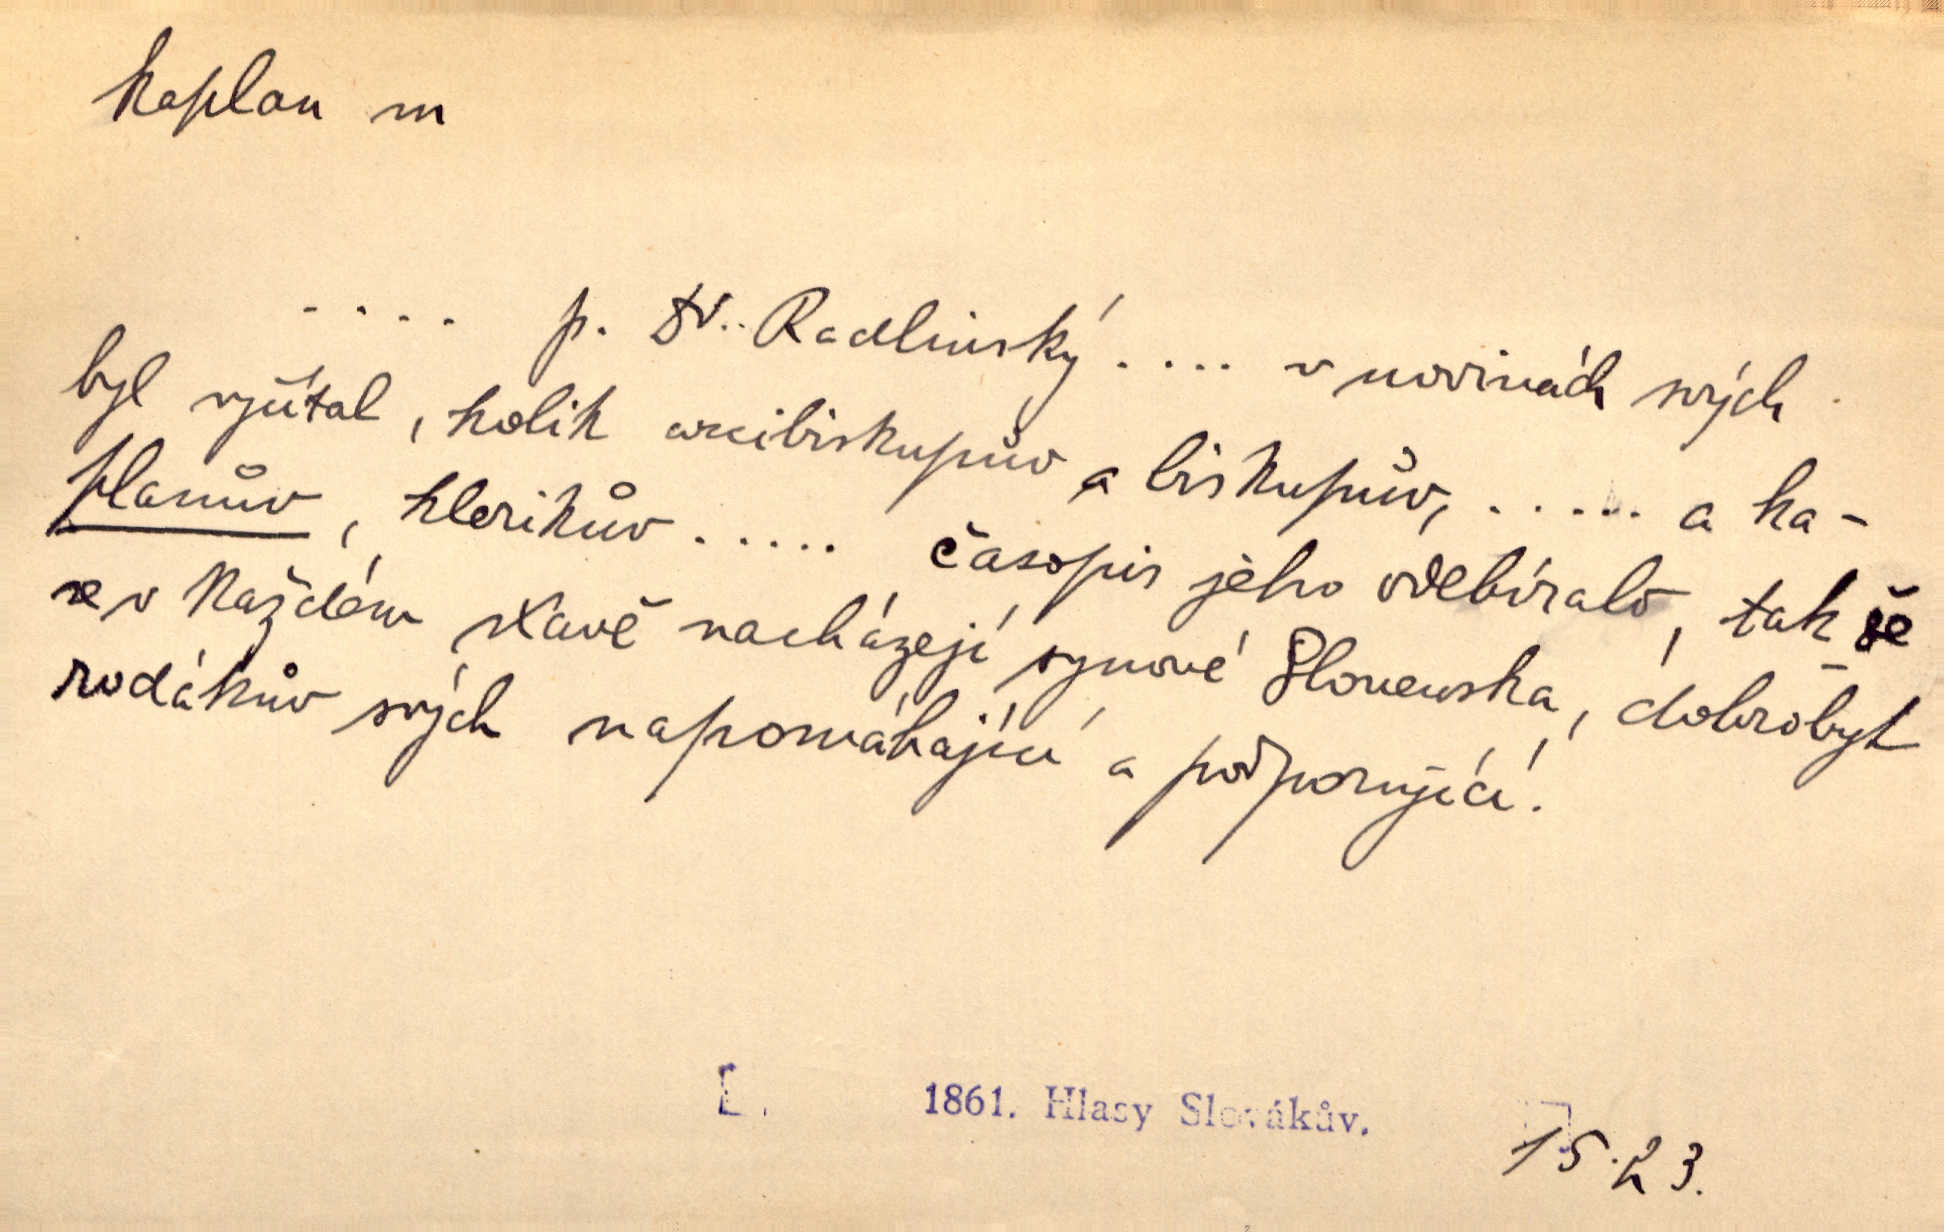 kaplan m
.... p. Dr. Radlinský .... v novinách svých
byl vyčítal, kolik arcibiskupův a biskupův, ..... a ka-
planův, klerikův ..... časopis jeho odebíralo, tak že
se v každém stavě nacházejí synové Slovenska, dobrobyt
rodákův svých napomáhající a podporující.
1861. Hlasy Slovákův.
15. 23.